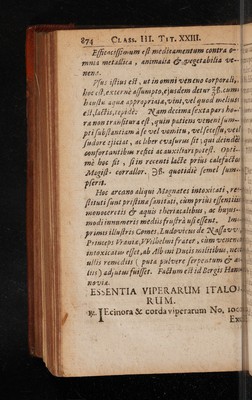 874 CLASS. III. TIT. XXIII.
Efficacissimum est medicamentum contra o-
mnia metallica, animalia & vegetabilia ve-
nena.
Usus istius est, ut in omni veneno corporali,
hoc est, externè assumpto, ejusdem detur ʒß. cum
haustu aquæ appropriatæ, vini, vel quod melius
est, lactis, tepidè: Nam decima sexta pars ho-
ræ non transitura est, quin putitus veneni sum-
pti substantiam à se vel vomitu, vel secessu, vel
sudore ejiciat, ac liber evasurus sit, qui deinde
confortantibus refici ac nutriri potest. Opti-
mè hoc fit, si in recenti lacte prius calefactus
Magist. corallor. ʒß. quotidiè semel sum-
pseris.
Hoc arcano aliqui Magnates intoxicati, re-
stituti sunt pristinæ sanitati, cùm prius essentiis
monocerotis & aquis theriacalibus, ac hujus-
modi innumeris mediis frustrà usi essent. Im-
primis illustris Comes, Ludovicus de Nassavv
Princeps Uraniæ, VVilhelmi frater, cùm veneno
intoxicatus esset, ab Albani Ducis militibus,
ullis remediis (puta pulvere serpentum &
) adjutus fuisset. Factum est id Bergis Hanno-
noviæ.
ESSENTIA VIPERARUM ITALO-
RUM.
℞. JEcinora & corda viperarum No. 100